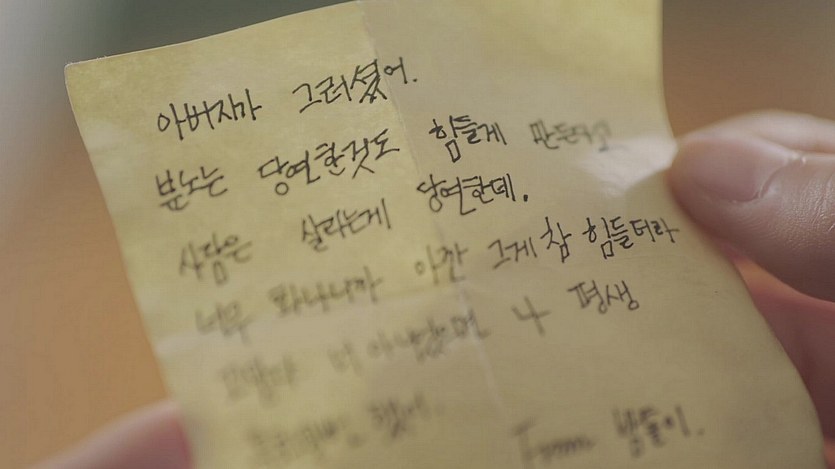 아버지가 그러셨어.
분노는 당연한것도 힘들게 만든다고
사람은 살라는게 당연한데.
너무 화나니까 아깐 그게 참 힘들더라
고맙다 너 아니었으면 나 평생
했어.
From 밤톨이.